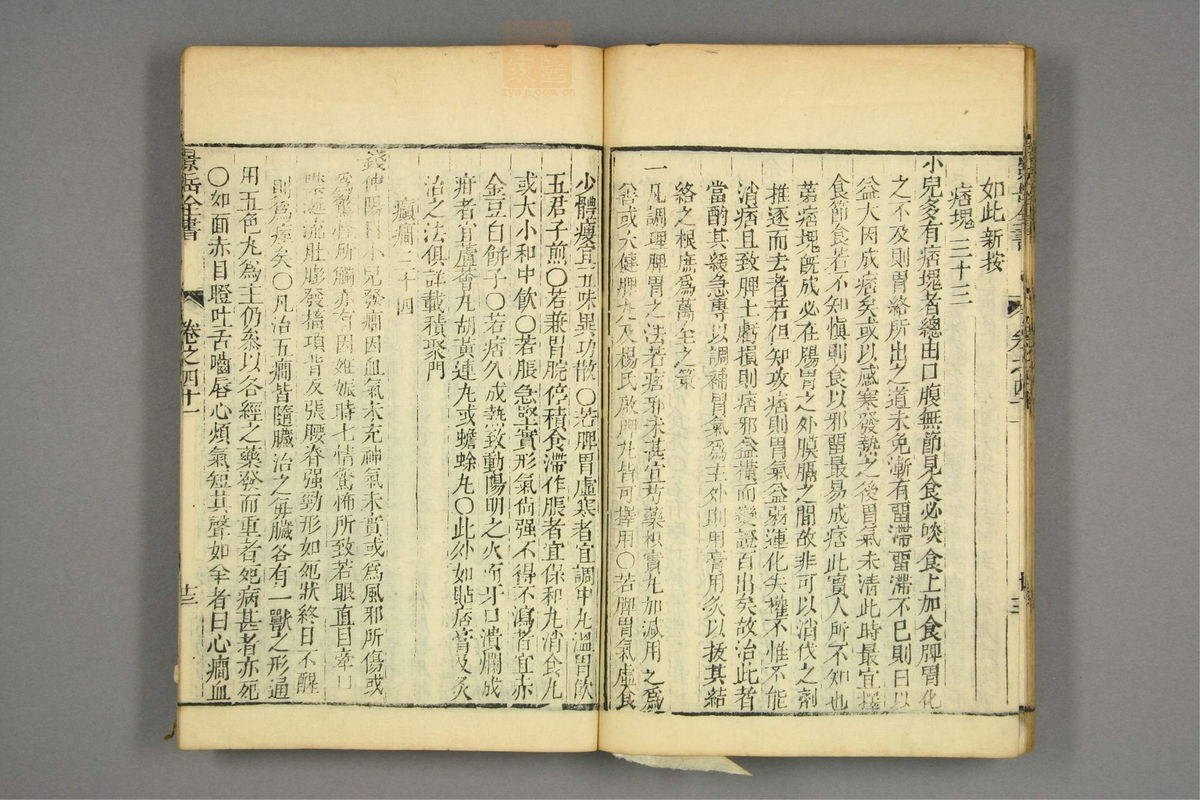 如此新按
痞塊 三十三
小兒多有痞塊者總由口腹無節見食必啖食上加食脾胃化
之不及則胃絡所出之道未免漸有畱滯畱滯不已則日以
益大因成痞矣或以感寒發熱之後胃氣未清此時最宜擇
食節食若不知慎則食以邪畱最易成痞此實人所不知也
第痞塊旣成必在腸胃之外膜膈之間故非可以消伐之劑
推逐而去者若但知攻痞則胃氣益弱運化失權不惟不能
消痞且致脾土虧損則痞邪益橫而變證百出矣故治此者
當酌其緩急專以調補胃氣爲主外則用膏用灸以拔其結
絡之根庶爲萬全之策
一凡調理脾胃之法若痞邪未甚宜芍藥枳實丸加減用之爲
善或大健脾丸及楊氏啟脾丸皆可擇用〇若脾胃氣虛食
少體瘦宜五味異功散〇若脾胃虛寒者宜調中丸溫胃飲
五君子煎〇若兼胃脘停積食滯作脹者宜保和丸消食丸
或大小和中飲〇若脹急堅實形氣尙强不得不瀉者宜赤
金豆白餅子〇若痞久成熱致動陽明之火而牙口潰爛成
疳者宜蘆薈丸胡黃連丸或蟾蜍丸〇此外如貼痞膏及灸
治之法俱詳載積聚門
癲癇 三十四
錢仲陽曰小兒發癇因血氣未充神氣未實或爲風邪所傷或
爲驚怪所觸亦有因姙娠時七情驚怖所致若眼直目牽口
噤涎流肚膨發搐項背反張腰脊强勁形如死狀終日不醒
則爲痓矣〇凡治五癇皆隨臟治之每臟各有一獸之形通
用五色丸為主仍叅以各經之藥發而重者死病甚者亦死
〇如面赤目瞪吐舌嚙唇心煩氣短其聲如羊者曰心癇血
景岳全書
卷之四十一